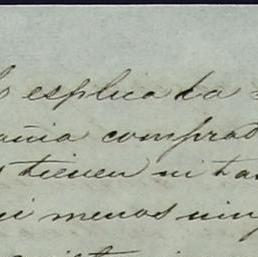 esplicada
añia comprad
tienen ni ta
ni menos ning